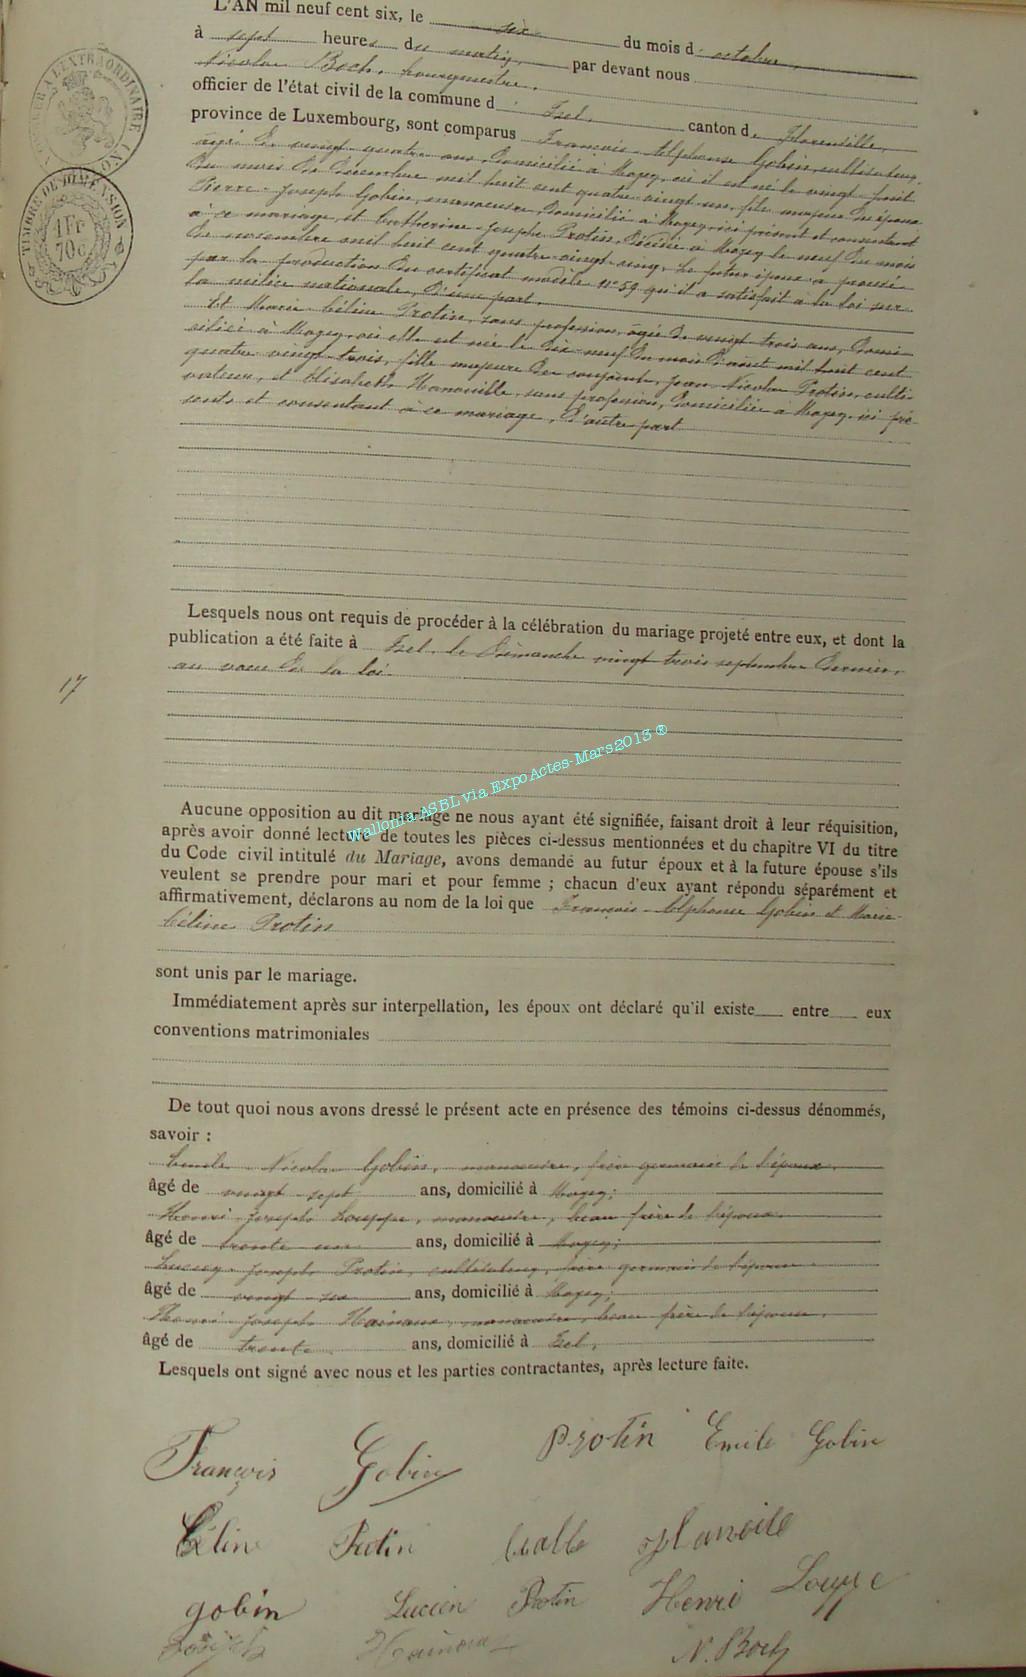 L'AN mil neuf cent six, le six du mois d'octobre,
à sept heures du matin, par devant nous
Nicolas Boch, bourgmestre,
officier de l'état civil de la commune d'Izel, canton de Florenville,
province de Luxembourg, sont comparus François-Alphonse Gobin, cultivateur,
âgé de vingt-quatre ans, domicilié à Moyen, où il est né le vingt-huit
du mois de Décembre mil huit cent quatre-vingt-un, fils majeur des époux
Pierre-Joseph Gobin, manoeuvre, domicilié à Moyen, ici présent et consentant
à ce mariage, et Catherine-Josephe Protin, décédée à Moyen le neuf du mois
de novembre mil huit cent quatre-vingt-cinq. Le futur époux a prouvé
par la production du certificat modèle n° 59 qu'il a satisfait à la loi sur
la milice nationale, d'une part.
Et Marie Céline Protin, sans profession, âgée de vingt-trois ans, domi-
ciliée à Moyen, où elle est née le dix-neuf du mois d'août mil huit cent
quatre-vingt-trois, fille majeure des conjoints Jean-Nicolas Protin, culti-
vateur, et Elisabeth sans profession, domiciliés à Moyen, ici pré-
sents et consentant à ce mariage, d'autre part
Lesquels nous ont requis de procéder à la célébration du mariage projeté entre eux, et dont la
publication a été faite à Izel, le Dimanche vingt-trois septembre dernier,
au voeu de la loi.
17
Aucune opposition au dit mariage ne nous ayant été signifiée, faisant droit à leur réquisition,
après avoir donné lecture de toutes les pièces ci-dessus mentionnées et du chapitre VI du titre
du Code civil intitulé du Mariage, avons demandé au futur époux et à la future épouse s'ils
veulent se prendre pour mari et pour femme ; chacun d'eux ayant répondu séparément et
affirmativement, déclarons au nom de la loi que François-Alphonse Gobin et Marie-
Céline Protin
sont unis par le mariage.
Immédiatement après sur interpellation, les époux ont déclaré qu'il existe entre eux
conventions matrimoniales
De tout quoi nous avons dressé le présent acte en présence des témoins ci-dessus dénommés,
savoir :
Emile Nicolas Gobin, manoeuvre, frère germain de l'époux,
âgé de vingt-sept ans, domicilié à Moyen;
Henri-Joseph Louppe, manoeuvre, beau-frère de l'époux
âgé de trente un ans, domicilié à Moyen;
Lucien-Joseph Protin, cultivateur, frère germain de l'épouse
âgé de vingt-six ans, domicilié à Moyen;
Joseph manoeuvre, beau-frère de l'épouse,
âgé de trente ans, domicilié à Izel,
Lesquels ont signé avec nous et les parties contractantes, après lecture faite.
François Gobin Protin Emile Gobin
Céline Protin
gobin Lucien Protin Henri Louppe
Joseph N. Boch
TIMBRE DE DIMENSION
1Fr
70c
Wallonia ASBL via ExpoActes-Mars2013 ®